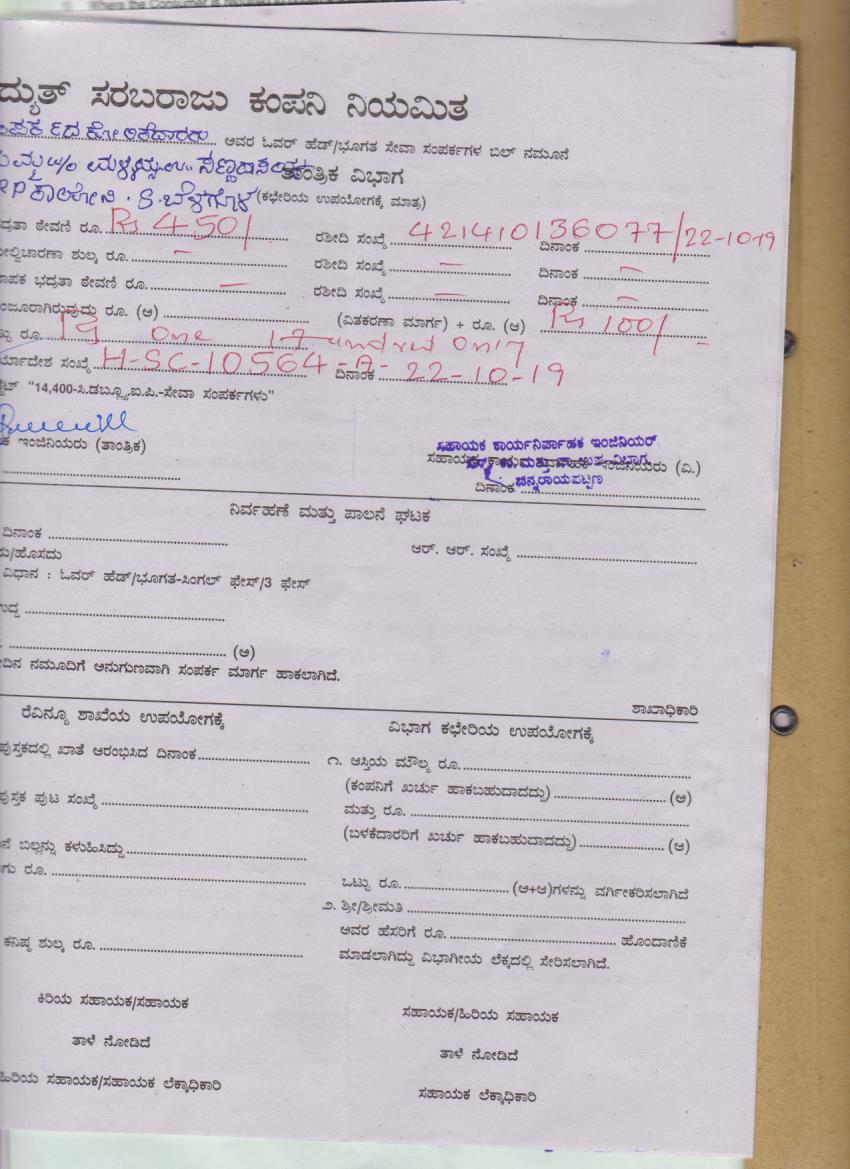 Where the Consumer is required to
ದ್ಯುತ್ ಸರಬರಾಜು ಕಂಪನಿ ನಿಯಮಿತ
ಅವರ ಓವರ್ ಹೆಡ್/ಭೂಗತ ಸೇವಾ ಸಂಪರ್ಕಗಳ ಬಿಲ್ ನಮೂನೆ
ತಾಂತ್ರಿಕ ವಿಭಾಗ
ಕಾಲೋನಿ . S. ಬೆಳಗೊಳ (ಕಛೇರಿಯ ಉಪಯೋಗಕ್ಕೆ ಮಾತ್ರ)
ದ್ರತಾ ಠೇವಣಿ ರೂ. Rs 450/ ರಶೀದಿ ಸಂಖ್ಯೆ 421410136077/ ದಿನಾಂಕ 22-10-19
ಲ್ವಿಚಾರಣಾ ಶುಲ್ಕ ರೂ. – ರಶೀದಿ ಸಂಖ್ಯೆ – ದಿನಾಂಕ –
ಾಪಕ ಭದ್ರತಾ ಠೇವಣಿ ರೂ. – ರಶೀದಿ ಸಂಖ್ಯೆ – ದಿನಾಂಕ –
ಂಜೂರಾಗಿರುವುದು ರೂ. (ಅ) (ವಿತಕರಣಾ ಮಾರ್ಗ) + ರೂ. (ಆ) Rs 100/-
ರೂ. Rs One Hundred Only
ರ್ಯಾದೇಶ ಸಂಖ್ಯೆ H-SC-10564-A- ದಿನಾಂಕ 22-10-19
"14,400-ಸಿ.ಡಬ್ಲ್ಯೂ.ಐ.ಪಿ.-ಸೇವಾ ಸಂಪರ್ಕಗಳು"
ಕ ಇಂಜಿನಿಯರು (ತಾಂತ್ರಿಕ)
ಸಹಾಯಕ ಕಾರ್ಯನಿರ್ವಾಹಕ ಇಂಜಿನಿಯರ್
ಸಹಾಯಕ ಕಾರ್ಯನಿರ್ವಾಹಕ ಇಂಜಿನಿಯರು (ವಿ.)
ಚನ್ನರಾಯಪಟ್ಟಣ
ದಿನಾಂಕ
ನಿರ್ವಹಣೆ ಮತ್ತು ಪಾಲನೆ ಘಟಕ
ದಿನಾಂಕ
ಆರ್. ಆರ್. ಸಂಖ್ಯೆ
ು/ಹೊಸದು
ವಿಧಾನ : ಓವರ್ ಹೆಡ್/ಭೂಗತ-ಸಿಂಗಲ್ ಫೇಸ್/3 ಫೇಸ್
ುದ್ದ
(ಅ)
ದಿನ ನಮೂದಿಗೆ ಅನುಗುಣವಾಗಿ ಸಂಪರ್ಕ ಮಾರ್ಗ ಹಾಕಲಾಗಿದೆ.
ಶಾಖಾಧಿಕಾರಿ
ರೆವಿನ್ಯೂ ಶಾಖೆಯ ಉಪಯೋಗಕ್ಕೆ
ಪುಸ್ತಕದಲ್ಲಿ ಖಾತೆ ಆರಂಭಿಸಿದ ದಿನಾಂಕ
ಪುಸ್ತಕ ಪುಟ ಸಂಖ್ಯೆ
ನೆ ಬಿಲ್ಲನ್ನು ಕಳುಹಿಸಿದ್ದು
ಗು ರೂ.
ಕನಿಷ್ಠ ಶುಲ್ಕ ರೂ.
ಕಿರಿಯ ಸಹಾಯಕ/ಸಹಾಯಕ
ತಾಳೆ ನೋಡಿದೆ
ಹಿರಿಯ ಸಹಾಯಕ/ಸಹಾಯಕ ಲೆಕ್ಕಾಧಿಕಾರಿ
ವಿಭಾಗ ಕಛೇರಿಯ ಉಪಯೋಗಕ್ಕೆ
೧. ಆಸ್ತಿಯ ಮೌಲ್ಯ ರೂ.
(ಕಂಪನಿಗೆ ಖರ್ಚು ಹಾಕಬಹುದಾದದ್ದು) (ಅ)
ಮತ್ತು ರೂ.
(ಬಳಕೆದಾರರಿಗೆ ಖರ್ಚು ಹಾಕಬಹುದಾದದ್ದು) (ಆ)
ಒಟ್ಟು ರೂ. (ಅ+ಆ)ಗಳನ್ನು ವರ್ಗೀಕರಿಸಲಾಗಿದೆ
೨. ಶ್ರೀ/ಶ್ರೀಮತಿ
ಅವರ ಹೆಸರಿಗೆ ರೂ. ಹೊಂದಾಣಿಕೆ
ಮಾಡಲಾಗಿದ್ದು ವಿಭಾಗೀಯ ಲೆಕ್ಕದಲ್ಲಿ ಸೇರಿಸಲಾಗಿದೆ.
ಸಹಾಯಕ/ಹಿರಿಯ ಸಹಾಯಕ
ತಾಳೆ ನೋಡಿದೆ
ಸಹಾಯಕ ಲೆಕ್ಕಾಧಿಕಾರಿ